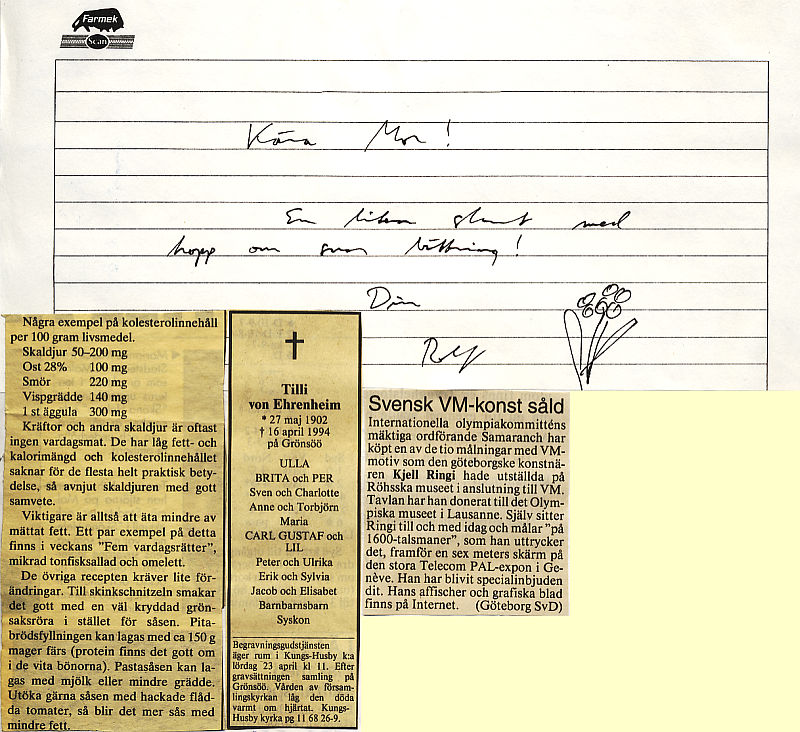 Farmek
Scan
Kära Mor!
En liten slant med
hopp om snar bättring!
Din
Rolf
Några exempel på kolesterolinnehåll
per 100 gram livsmedel.
Skaldjur 50–200 mg
Ost 28% 100 mg
Smör 220 mg
Vispgrädde 140 mg
1 st äggula 300 mg
Kräftor och andra skaldjur är oftast
ingen vardagsmat. De har låg fett- och
kalorimängd och kolesterolinnehållet
saknar för de flesta helt praktisk bety-
delse, så avnjut skaldjuren med gott
samvete.
Viktigare är alltså att äta mindre av
mättat fett. Ett par exempel på detta
finns i veckans "Fem vardagsrätter",
mikrad tonfisksallad och omelett.
De övriga recepten kräver lite för-
ändringar. Till skinkschnitzeln smakar
det gott med en väl kryddad grön-
saksröra i stället för såsen. Pita-
brödsfyllningen kan lagas med ca 150 g
mager färs (protein finns det gott om
i de vita bönorna). Pastasåsen kan la-
gas med mjölk eller mindre grädde.
Utöka gärna såsen med hackade flåd-
da tomater, så blir det mer sås med
mindre fett.
Tilli
von Ehrenheim
* 27 maj 1902
† 16 april 1994
på Grönsöö
ULLA
BRITA och PER
Sven och Charlotte
Anne och Torbjörn
Maria
CARL GUSTAF och
LIL
Peter och Ulrika
Erik och Sylvia
Jacob och Elisabet
Barnbarnsbarn
Syskon
Begravningsgudstjänsten
äger rum i Kungs-Husby k:a
lördag 23 april kl 11. Efter
gravsättningen samling på
Grönsöö. Vården av försam-
lingskyrkan låg den döda
varmt om hjärtat. Kungs-
Husby kyrka pg 11 68 26-9.
Svensk VM-konst såld
Internationella olympiakommitténs
mäktiga ordförande Samaranch har
köpt en av de tio målningar med VM-
motiv som den göteborgske konstnä-
ren Kjell Ringi hade utställda på
Röhsska museet i anslutning till VM.
Tavlan har han donerat till det Olym-
piska museet i Lausanne. Själv sitter
Ringi till och med idag och målar "på
1600-talsmaner", som han uttrycker
det, framför en sex meters skärm på
den stora Telecom PAL-expon i Ge-
nève. Han har blivit specialinbjuden
dit. Hans affischer och grafiska blad
finns på Internet. (Göteborg SvD)